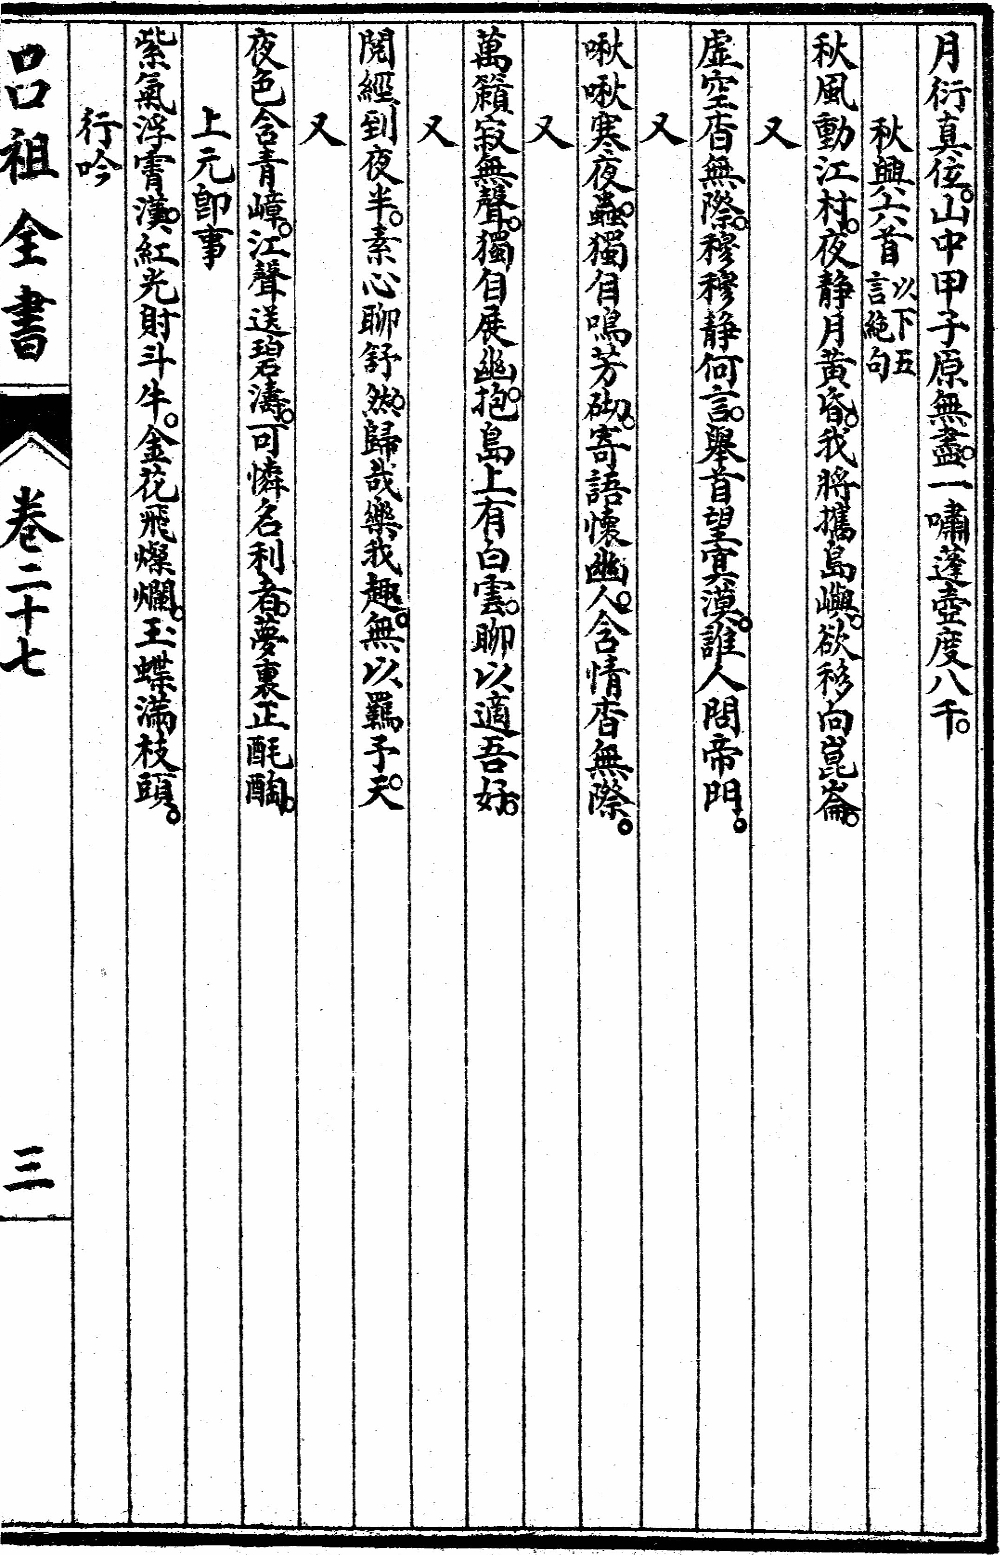 月衍真位。山中甲子原無盡。一嘯蓬壺度八千。
秋興六首以下五言絶句
秋風動江村。夜靜月黃昏。我將攜島嶼。欲移向崑崙。
又
虛空杳無際。穆穆靜何言。舉首望寞漠。誰人問帝門。
又
啾啾寒夜蟲。獨自鳴芳砌。寄語懷幽人。含情杳無際。
又
萬籟寂無聲。獨自展幽抱。島上有白雲。聊以適吾好。
又
閱經到夜半。素心聊舒然。歸哉樂我趣。無以羈予天。
又
夜色含青嶂。江聲送碧濤。可憐名利者。夢裏正酕醄。
上元卽事
紫氣浮霄漢。紅光射斗牛。金花飛燦爛。玉蝶滿枝頭。
行吟
呂祖全書
卷二十七
三